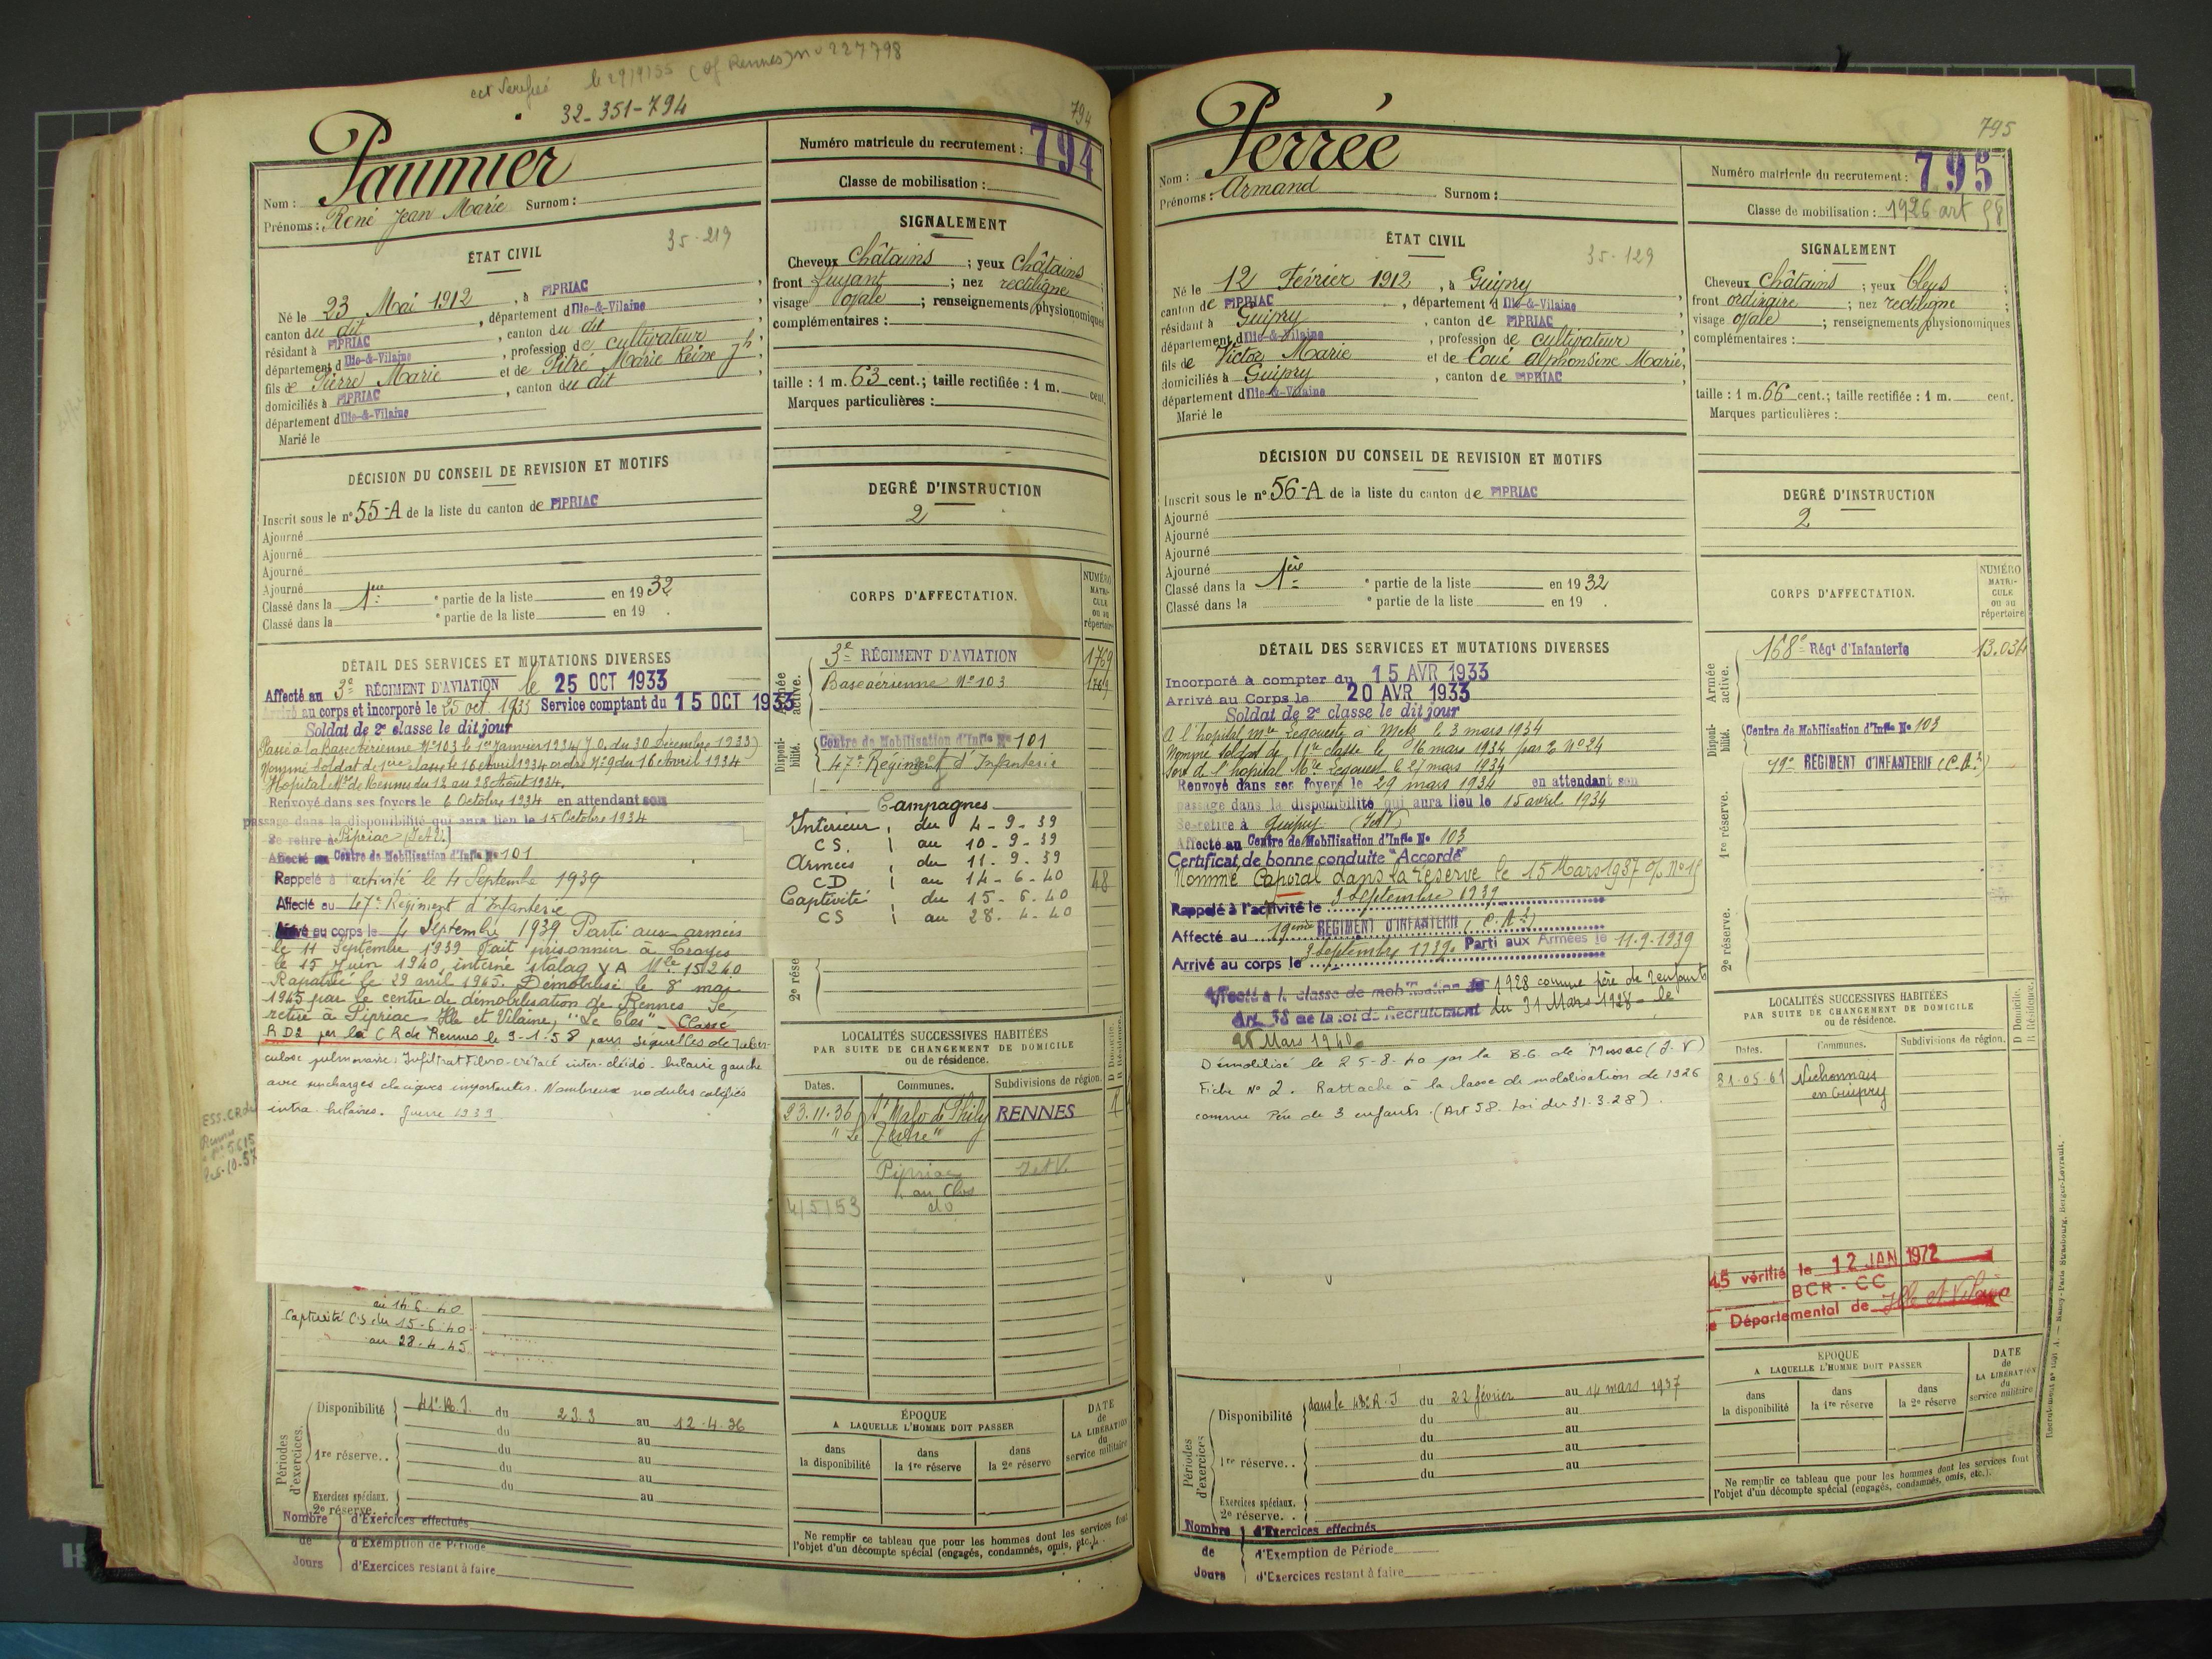 32-351-794
794
Paumier
Nom :
Prénoms : René Jean Marie Surnom :
Numéro matricule du recrutement : 794
Classe de mobilisation :
ÉTAT CIVIL
35-219
Né le 23 Mai 1912, à PIPRIAC
canton du dit, département d Ille-&-Vilaine
résidant à PIPRIAC, canton du dit
département d Ille-&-Vilaine, profession de cultivateur
fils de Pierre Marie et de Pitré Marie Reine Jh
domiciliés à PIPRIAC, canton du dit
département d Ille-&-Vilaine
Marié le
SIGNALEMENT
Cheveux Châtains ; yeux Châtains
front fuyant ; nez rectiligne
visage ovale ; renseignements physionomiques
complémentaires :
taille : 1 m. 63 cent. ; taille rectifiée : 1 m. cent.
Marques particulières :
DÉCISION DU CONSEIL DE REVISION ET MOTIFS
Inscrit sous le n° 55-A de la liste du canton de PIPRIAC
Ajourné
Ajourné
Ajourné
Ajourné
Classé dans la 1ère partie de la liste en 1932
Classé dans la e partie de la liste en 19 .
DEGRÉ D'INSTRUCTION
2
DÉTAIL DES SERVICES ET MUTATIONS DIVERSES
Affecté au 3e RÉGIMENT D'AVIATION le 25 OCT 1933
Arrivé au corps et incorporé le 25 oct. 1933 Service comptant du 15 OCT 1933
Soldat de 2e classe le dit jour
Passé à la Base Aérienne N°103 le 1er Janvier 1934 (J.O. du 30 Décembre 1933)
Nommé Soldat de 1ère classe le 16 Avril 1934 ordre N°29 du 16 Avril 1934
Hôpital Mre de Rennes du 12 au 28 Août 1934.
Renvoyé dans ses foyers le 6 Octobre 1934 en attendant son
passage dans la disponibilité qui aura lieu le 15 Octobre 1934
Se retire à Pipriac (I et V.)
Affecté au Centre de Mobilisation d'Infie N° 101
Rappelé à activité le 4 Septembre 1939
Affecté au 47e Régiment d'Infanterie
Arrivé au corps le 4 Septembre 1939 Parti aux armées
le 11 Septembre 1939 Fait prisonnier à Troyes
le 15 Juin 1940, interné stalag V A Mle 15240
Rapatrié le 29 avril 1945. Démobilisé le 8 mai
1945 par le centre de démobilisation de Rennes Se
retire à Pipriac Ille et Vilaine, "Le Clos" - Classé
RD2 par la CR de Rennes le 9-1-58 pour séquelles de tuber-
culose pulmonaire ; Infiltrat fibro-crétacé inter-cléido-hilaire gauche
avec surcharges clasiques importantes. Nombreux nodules calcifiés
intra-hilaires. Guerre 1939
au 14-6-40
Captivité CS du 15-6-40
au 28-4-45
CORPS D'AFFECTATION.
NUMÉRO MATRICULE ou au répertoire
Armée active.
3e RÉGIMENT D'AVIATION 1769
Base aérienne N°103
Disponibilité.
Centre de Mobilisation d'Infie N° 101
47e Régiment d'Infanterie
Campagnes
Intérieur, du 4-9-39
CS. au 10-9-39
Armées du 11-9-39
CD au 14-6-40
Captivité du 15-6-40
CS au 28-4-40
48
2e rése
LOCALITÉS SUCCESSIVES HABITÉES
PAR SUITE DE CHANGEMENT DE DOMICILE
ou de résidence.
D Domicile. R Résidence.
Dates. Communes. Subdivisions de région.
23.11.36 St Malo de Phily RENNES
" Le Tertre "
Pipriac I et V.
au Clos
4/5/53 do
Périodes d'exercices.
Disponibilité 41e R.I. du 23.3 au 12.4.36
du au
1re réserve.. du au
du au
du au
Exercices spéciaux. au
2e réserve. .
Nombre de Jours
d'Exercices effectués
d'Exemption de Période
d'Exercices restant à faire
ÉPOQUE
A LAQUELLE L'HOMME DOIT PASSER
dans la disponibilité
dans la 1re réserve
dans la 2e réserve
DATE de LA LIBÉRATION du service militaire
Ne remplir ce tableau que pour les hommes dont les services font
l'objet d'un décompte spécial (engagés, condamnés, omis, etc.).
795
Perrée
Nom :
Prénoms : Armand Surnom :
Numéro matricule du recrutement : 795
Classe de mobilisation : 1926 art 58
ÉTAT CIVIL
35-129
Né le 12 Février 1912, à Guipry
canton de PIPRIAC, département d Ille-&-Vilaine
résidant à Guipry, canton de PIPRIAC
département d Ille-&-Vilaine, profession de cultivateur
fils de Victor Marie et de Coué Alphonsine Marie,
domiciliés à Guipry, canton de PIPRIAC
département d Ille-&-Vilaine
Marié le
SIGNALEMENT
Cheveux Châtains ; yeux bleus
front ordinaire ; nez rectiligne
visage ovale ; renseignements physionomiques
complémentaires :
taille : 1 m. 66 cent. ; taille rectifiée : 1 m. cent.
Marques particulières :
DÉCISION DU CONSEIL DE REVISION ET MOTIFS
Inscrit sous le n° 56-A de la liste du canton de PIPRIAC
Ajourné
Ajourné
Ajourné
Ajourné
Classé dans la 1ère partie de la liste en 1932
Classé dans la e partie de la liste en 19 .
DEGRÉ D'INSTRUCTION
2
DÉTAIL DES SERVICES ET MUTATIONS DIVERSES
Incorporé à compter du 15 AVR 1933
Arrivé au Corps le 20 AVR 1933
Soldat de 2e classe le dit jour
A l'hôpital mre Legouest à Metz le 3 mars 1934
Nommé Soldat de 1re classe le 16 mars 1934 par O N°24
Sort de l'hôpital Mre Legouest le 27 mars 1934
Renvoyé dans ses foyers le 29 mars 1934 en attendant son
passage dans la disponibilité qui aura lieu le 15 avril 1934
Se retire à Guipry (I et V)
Affecté au Centre de Mobilisation d'Infie N° 103
Certificat de bonne conduite "Accordé"
Nommé Caporal dans la réserve le 15 Mars 1937
Rappelé à l'activité le 3 Septembre 1939
Affecté au 19ème RÉGIMENT D'INFANTERIE (C.A.2)
Arrivé au corps le 3 Septembre 1939. Parti aux Armées le 11-9-1939
Affecté à la classe de mobilisation de 1928 comme père de 2 enfants
Art. 58 de la loi de Recrutement du 31 Mars 1928 - le
28 Mars 1940
Démobilisé le 25-8-40 par la B.G. de Messac (I.V)
Fiche N° 2. Rattaché à la classe de mobilisation de 1926
comme Père de 3 enfants. (Art 58. Loi du 31.3.28).
CORPS D'AFFECTATION.
NUMÉRO MATRICULE ou au répertoire
Armée active.
168e Régt d'Infanterie 13.034
Disponibilité.
Centre de Mobilisation d'Infie N° 103
19e RÉGIMENT D'INFANTERIE (C.A.2)
1re réserve.
2e réserve.
LOCALITÉS SUCCESSIVES HABITÉES
PAR SUITE DE CHANGEMENT DE DOMICILE
ou de résidence.
D Domicile. R Résidence.
Dates. Communes. Subdivisions de région.
31-05-61
en Guipry
vérifié le 12 JAN 1972
BCR - CC
Départemental de Ille et Vilaine
Périodes d'exercices
Disponibilité dans le 48e R.I du 22 février au 14 mars 1937
du au
du au
1re réserve. . du au
du au
Exercices spéciaux.
2e réserve. .
Nombre de Jours
d'Exercices effectués
d'Exemption de Période
d'Exercices restant à faire
ÉPOQUE
A LAQUELLE L'HOMME DOIT PASSER
dans la disponibilité
dans la 1re réserve
dans la 2e réserve
DATE de LA LIBÉRATION du service militaire
Ne remplir ce tableau que pour les hommes dont les services font
l'objet d'un décompte spécial (engagés, condamnés, omis, etc.).
Nancy-Paris-Strasbourg, Berger-Levrault.